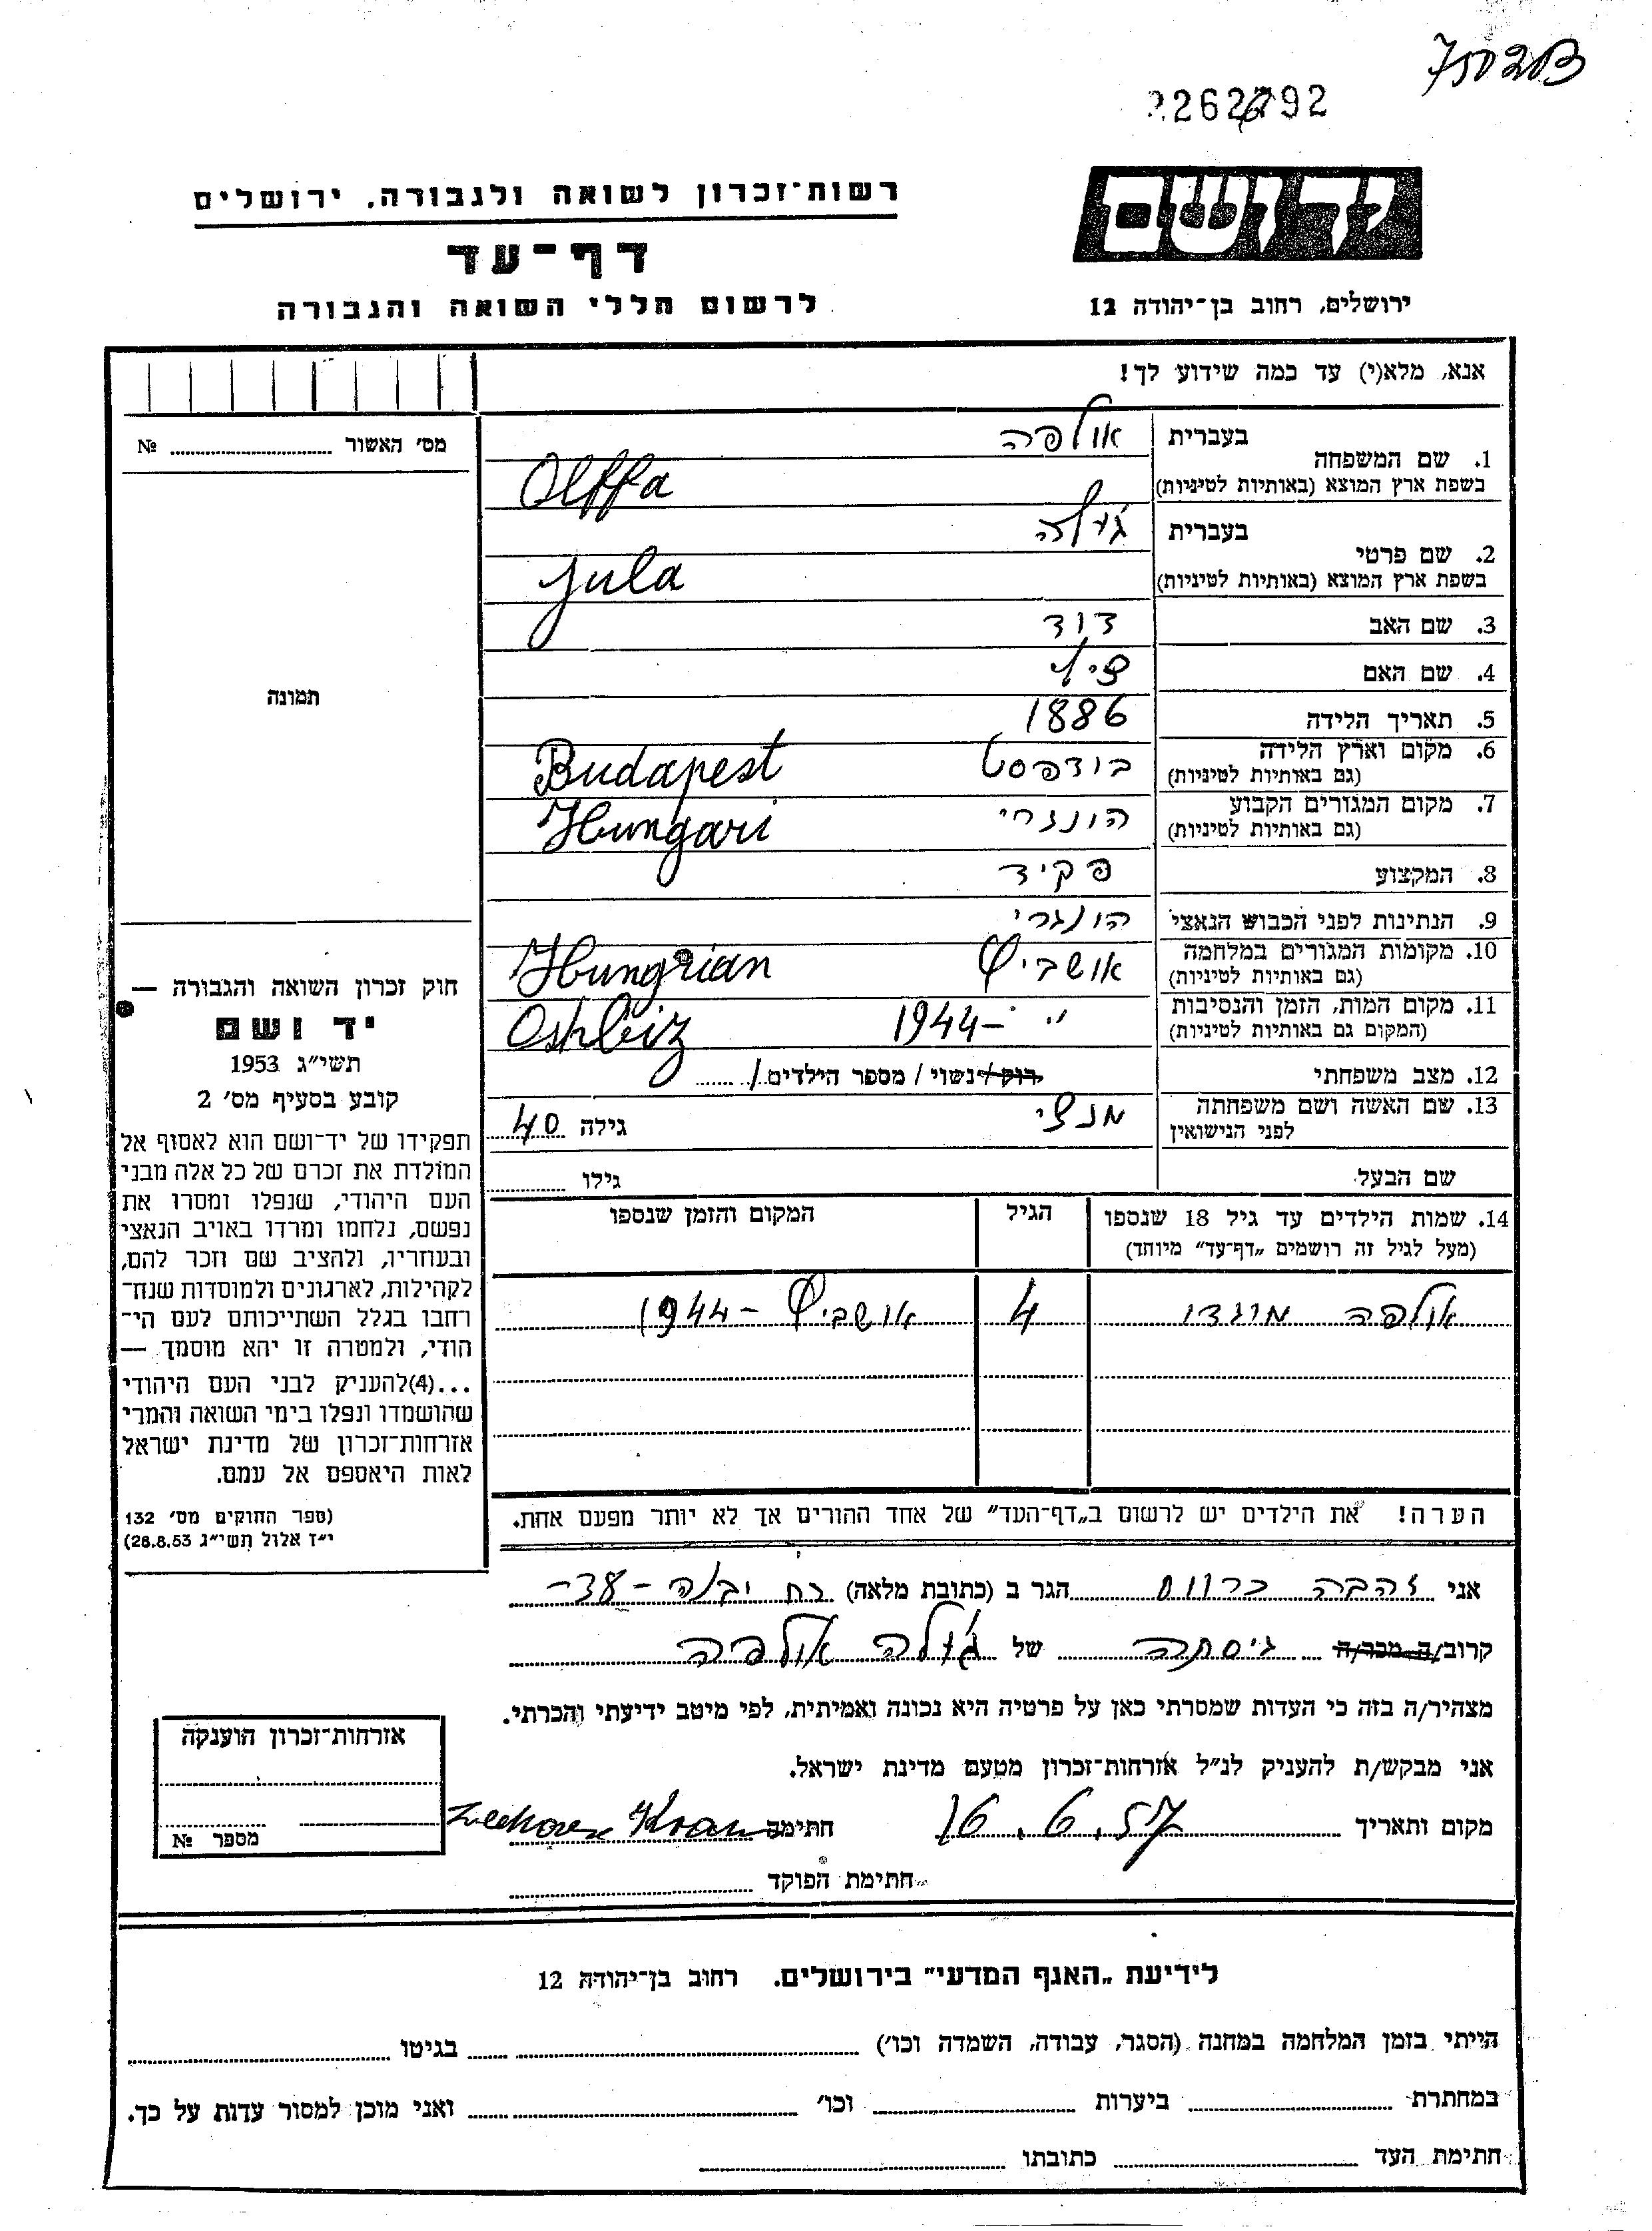 75028
רשות־זכרון לשואה ולגבורה, ירושלים
ידושם
דף־עד
לרשום חללי השואה והגבורה
ירושלים, רחוב בן־יהודה 12
אנא, מלא(י) עד כמה שידוע לך!
מס׳ האשור № 
1. שם המשפחה
בעברית אולפה
בשפת ארץ המוצא (באותיות לטיניות) Olffa
2. שם פרטי
בעברית ג׳ולה
בשפת ארץ המוצא (באותיות לטיניות) Jula
3. שם האב דוד
4. שם האם צילי
תמונה
5. תאריך הלידה 1886
6. מקום וארץ הלידה (גם באותיות לטיניות) בודפסט Budapest
7. מקום המגורים הקבוע (גם באותיות לטיניות) הונגרי Hungari
8. המקצוע פקיד
9. הנתינות לפני הכבוש הנאצי הונגרי
10. מקומות המגורים במלחמה (גם באותיות לטיניות) אושביץ Hungrian
11. מקום המות, הזמן והנסיבות (המקום גם באותיות לטיניות) ״ – 1944 Oshbiz
12. מצב משפחתי רוק / נשוי / מספר הילדים 1
13. שם האשה ושם משפחתה לפני הנישואין מנצי גילה 40
שם הבעל גילו
14. שמות הילדים עד גיל 18 שנספו
(מעל לגיל זה רושמים „דף־עד״ מיוחד)
הגיל
המקום והזמן שנספו
אולפה מוגדו 4 אושביץ – 1944
הערה! את הילדים יש לרשום ב„דף־העד״ של אחד ההורים אך לא יותר מפעם אחת.
חוק זכרון השואה והגבורה —
יד ושם
תשי״ג 1953
קובע בסעיף מס׳ 2
תפקידו של יד־ושם הוא לאסוף אל
המולדת את זכרם של כל אלה מבני
העם היהודי, שנפלו ומסרו את
נפשם, נלחמו ומרדו באויב הנאצי
ובעוזריו, ולהציב שם וזכר להם,
לקהילות, לארגונים ולמוסדות שנח־
רבו בגלל השתייכותם לעם הי־
הודי, ולמטרה זו יהא מוסמך —
...(4)להעניק לבני העם היהודי
שהושמדו ונפלו בימי השואה והמרי
אזרחות־זכרון של מדינת ישראל
לאות היאספם אל עמם.
(ספר החוקים מס׳ 132
י״ז אלול תשי״ג 28.8.53)
אני זהבה כרווס הגר ב (כתובת מלאה) רח יבנה – 38 –
קרוב/ה מכר/ה גיסתה של ג׳ולה אולפה
מצהיר/ה בזה כי העדות שמסרתי כאן על פרטיה היא נכונה ואמיתית, לפי מיטב ידיעתי והכרתי.
אני מבקש/ת להעניק לנ״ל אזרחות־זכרון מטעם מדינת ישראל.
מקום ותאריך 16.6.57 חתימה
חתימת הפוקד
אזרחות־זכרון הוענקה
מספר №
לידיעת „האגף המדעי״ בירושלים. רחוב בן־יהודה 12
הייתי בזמן המלחמה במחנה (הסגר, עבודה, השמדה וכו׳) בגיטו
במחתרת ביערות וכו׳ ואני מוכן למסור עדות על כך.
חתימת העד כתובתו